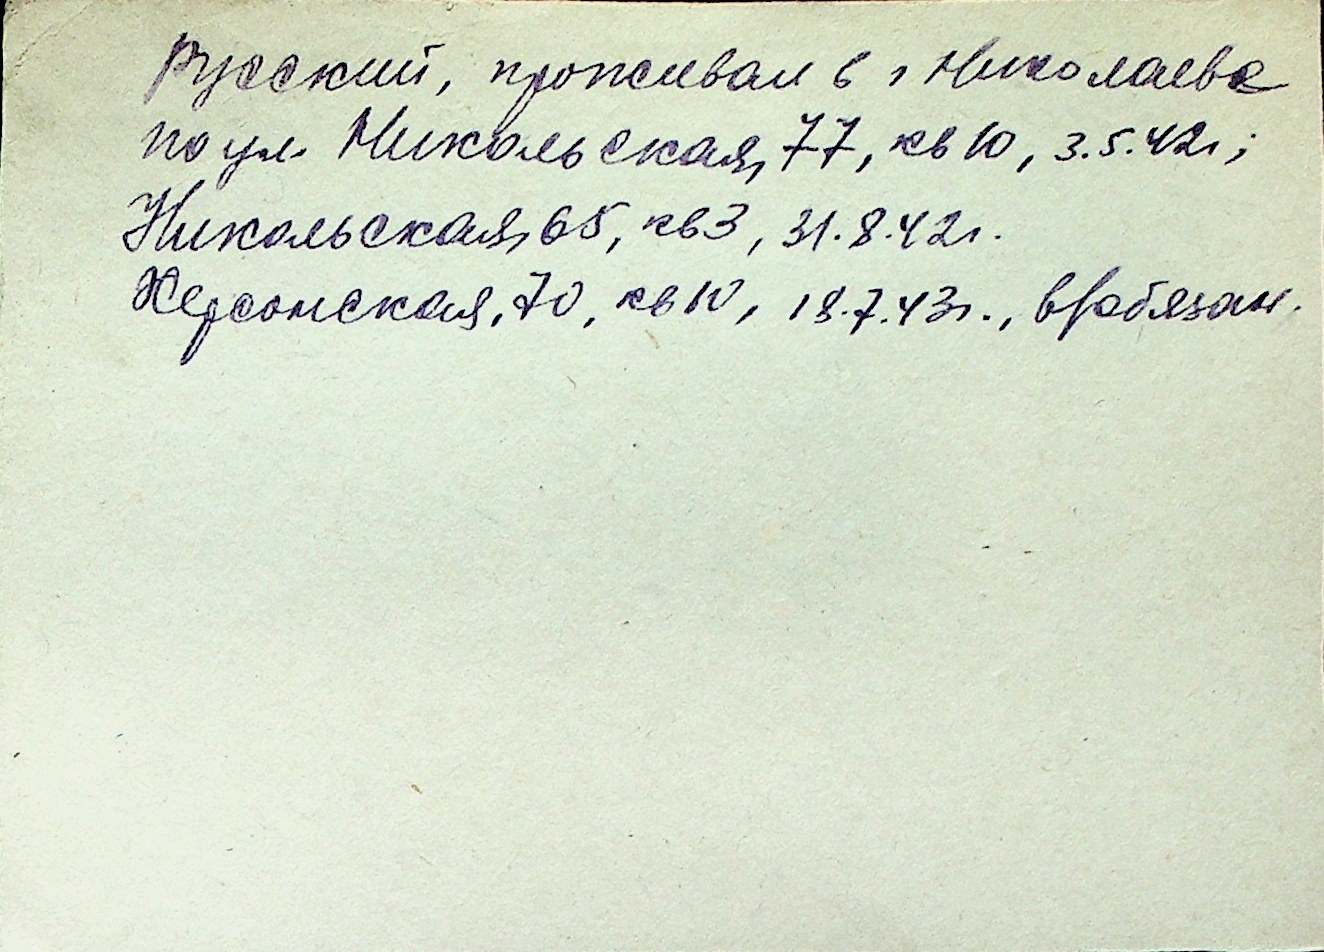 Русский, проживал в г Николаеве
по ул. Никольская, 77, кв 10, 3.5.42г;
Никольская, 65, кв 3, 31.8.42г.
Херсонская, 70, кв 10, 18.7.43г.,